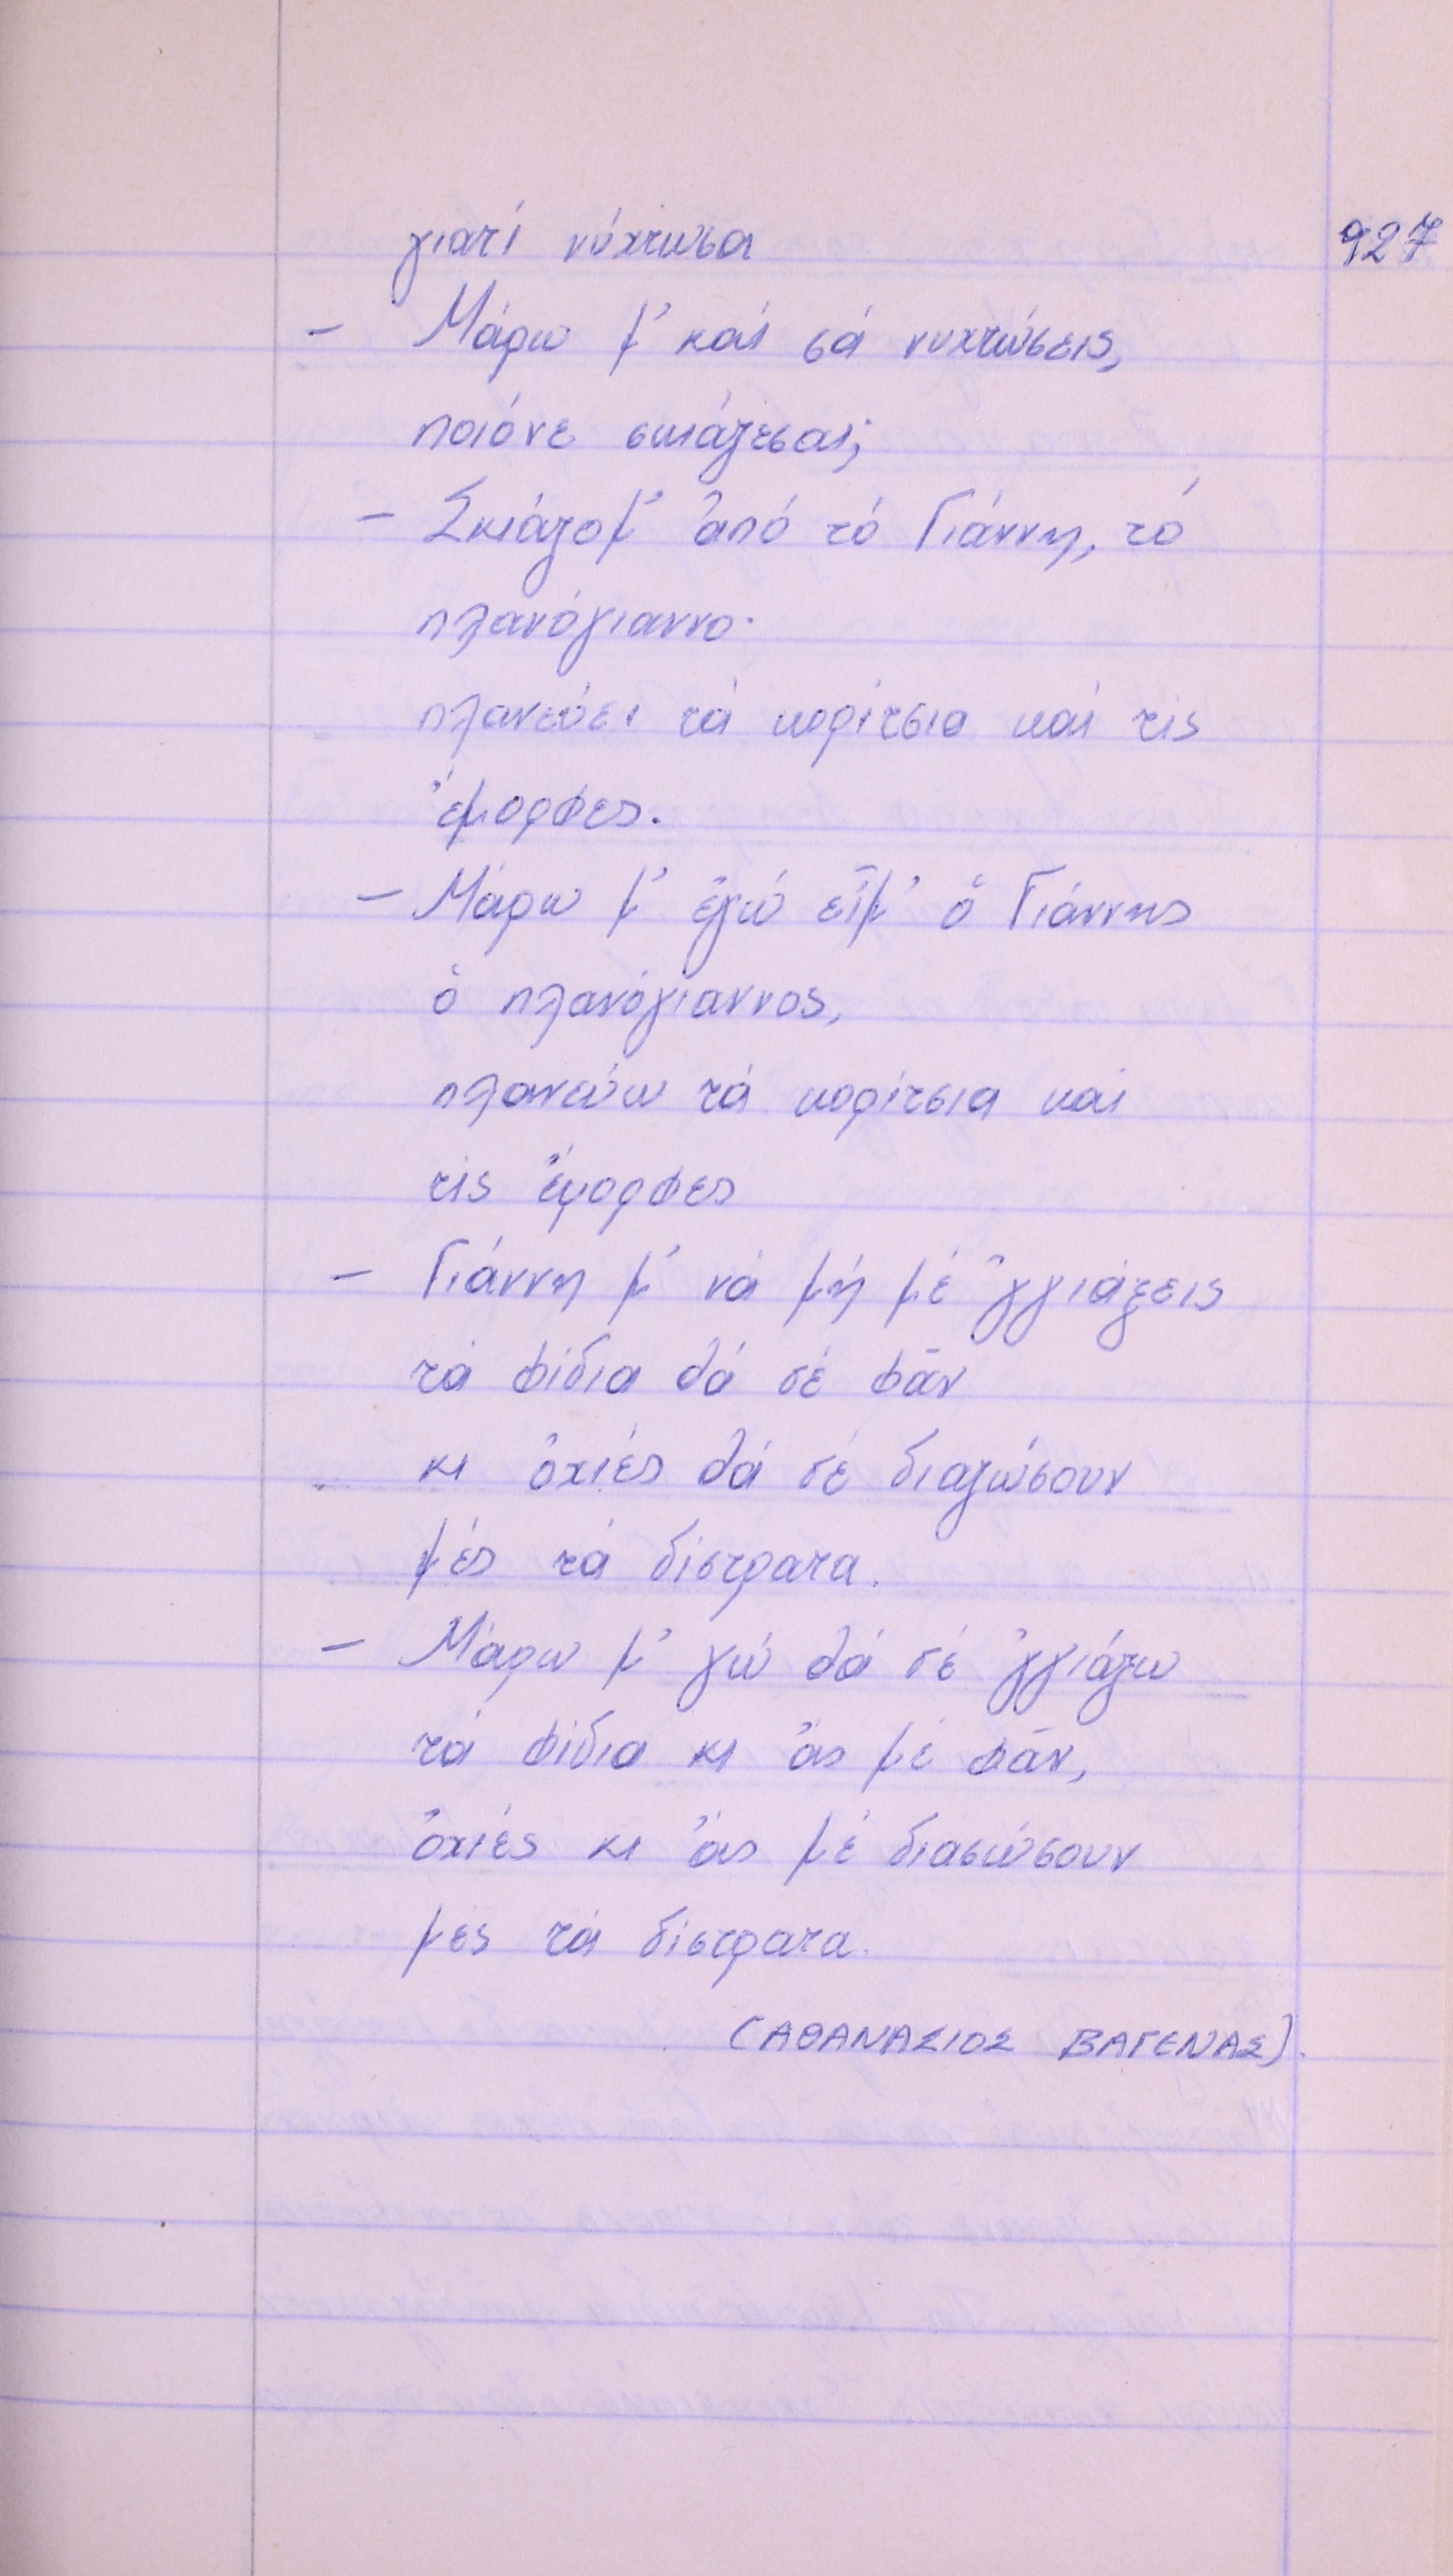 927
γιατί νύχτωσα
- Μάρω μ' καί σά νυχτώσεις,
ποιόνε σκιάζεσαι;
- Σκιάζομ' ἀπό τό Γιάννη, τό
πλανόγιαννο·
πλανεύει τά κορίτσια καί τίς
ἔμορφες.
- Μάρω μ' ἐγώ εἶμ' ὁ Γιάννης
ὁ πλανόγιαννος,
πλανεύω τά κορίτσια καί
τίς ἔμορφες
- Γιάννη μ' νά μή μέ 'γγιάξεις
τά φίδια θά σέ φᾶν
κι ὀχιές θά σέ διαζώσουν
μές τά δίστρατα.
- Μάρω μ' γώ θά σέ 'γγιάζω
τά φίδια κι ἄς μέ φᾶν,
ὀχιές κι ἄς μέ διασώσουν
μές τά δίστρατα.
(ΑΘΑΝΑΣΙΟΣ ΒΑΓΕΝΑΣ).